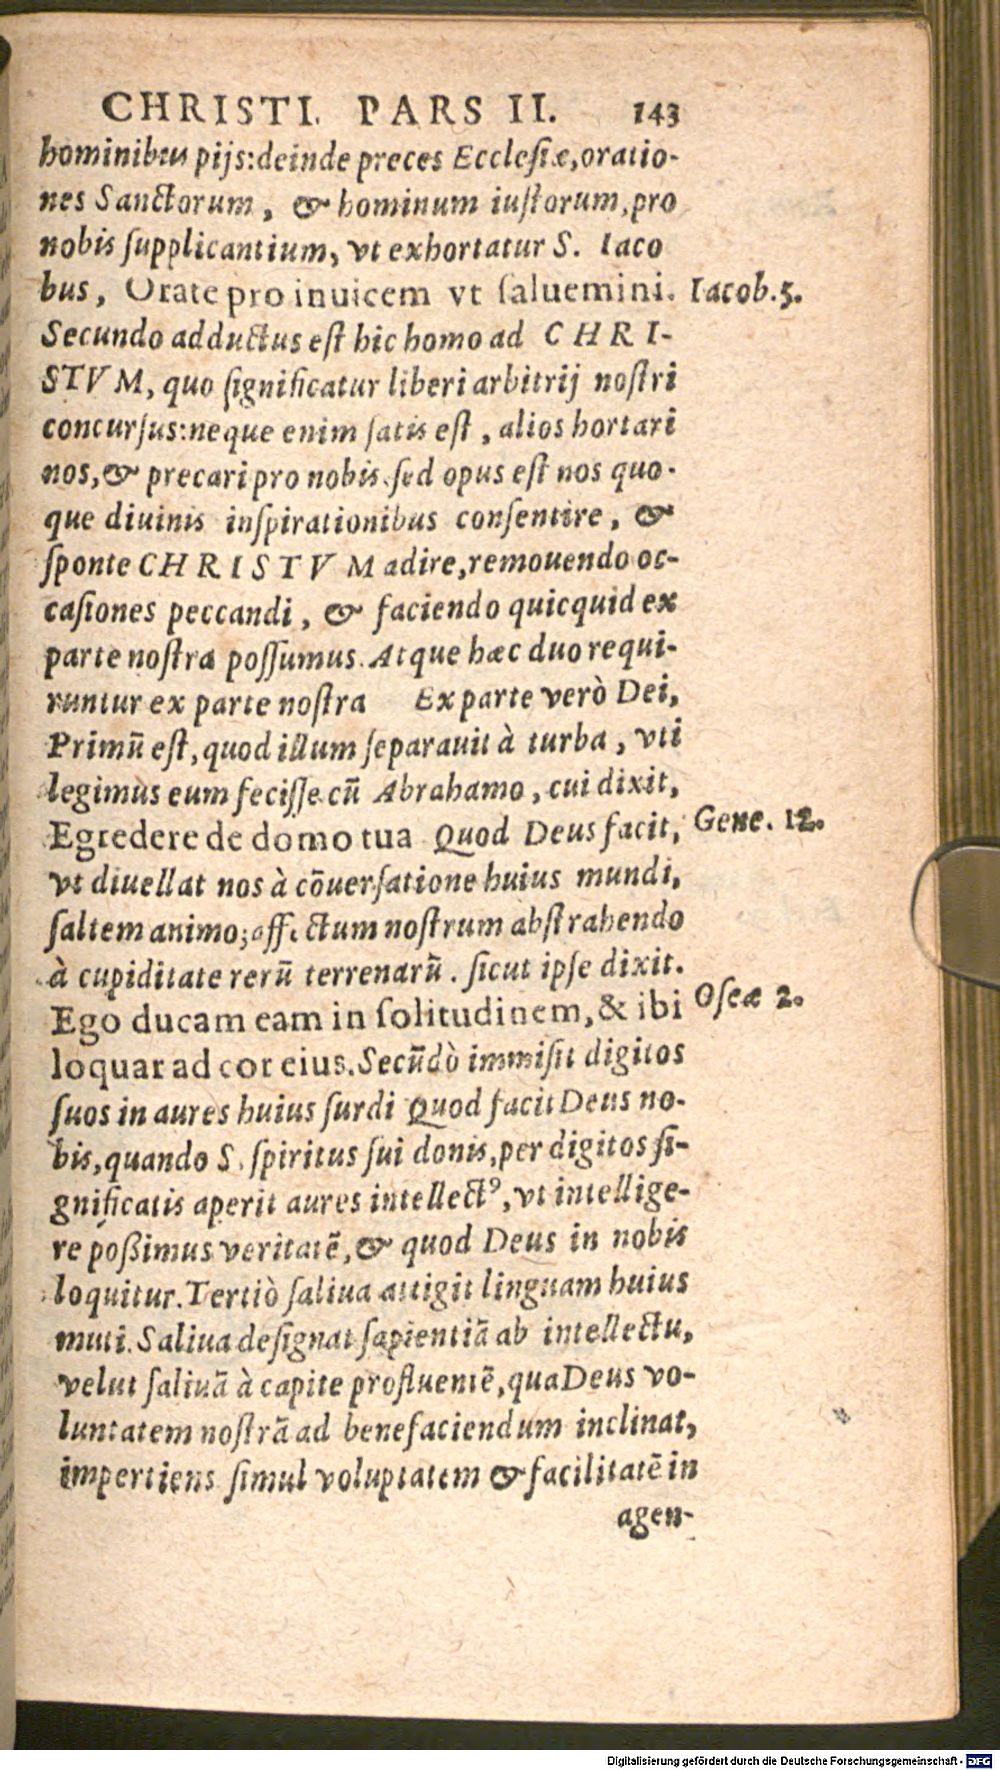 CHRISTI. PARS II. 143
hominibus pijs: deinde preces Ecclesiæ, oratio-
nes Sanctorum, & hominum iustorum, pro
nobis supplicantium, vt exhortatur S. Iaco
bus, Orate pro inuicem vt saluemini. Iacob. 5.
Secundo adductus est hic homo ad CHRI-
STVM, quo significatur liberi arbitrij nostri
concursus: neque enim satis est, alios hortari
nos, & precari pro nobis. sed opus est nos quo-
que diuinis inspirationibus consentire, &
sponte CHRISTVM adire, remouendo oc-
casiones peccandi, & faciendo quicquid ex
parte nostra possumus. Atque hæc duo requi-
runtur ex parte nostra Ex parte verò Dei,
Primũ est, quod illum separauit à turba, vti
legimus eum fecisse cũ Abrahamo, cui dixit,
Egredere de domo tua Quod Deus facit, Gene. 12.
vt diuellat nos à cõuersatione huius mundi,
saltem animo; affectum nostrum abstrahendo
à cupiditate rerũ terrenarũ. sicut ipse dixit.
Ego ducam eam in solitudinem, & ibi Oseæ 2.
loquar ad cor eius. Secũdò immisit digitos
suos in aures huius surdi Quod facit Deus no-
bis, quando S. spiritus sui donis, per digitos si-
gnificatis aperit aures intellectꝰ, vt intellige-
re poßimus veritatẽ, & quod Deus in nobis
loquitur. Tertiò saliua attigit linguam huius
muti. Saliua designat sapientiã ab intellectu,
velut saliuã à capite profluentẽ, qua Deus vo-
luntatem nostrã ad benefaciendum inclinat,
impertiens simul voluptatem & facilitatẽ in
agen-
Digitalisierung gefördert durch die Deutsche Forschungsgemeinschaft - DFG